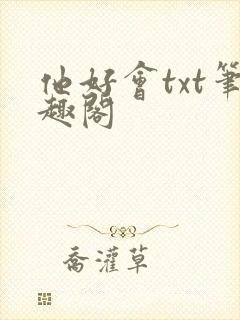 他好會txt筆
趣閣
喬灌草